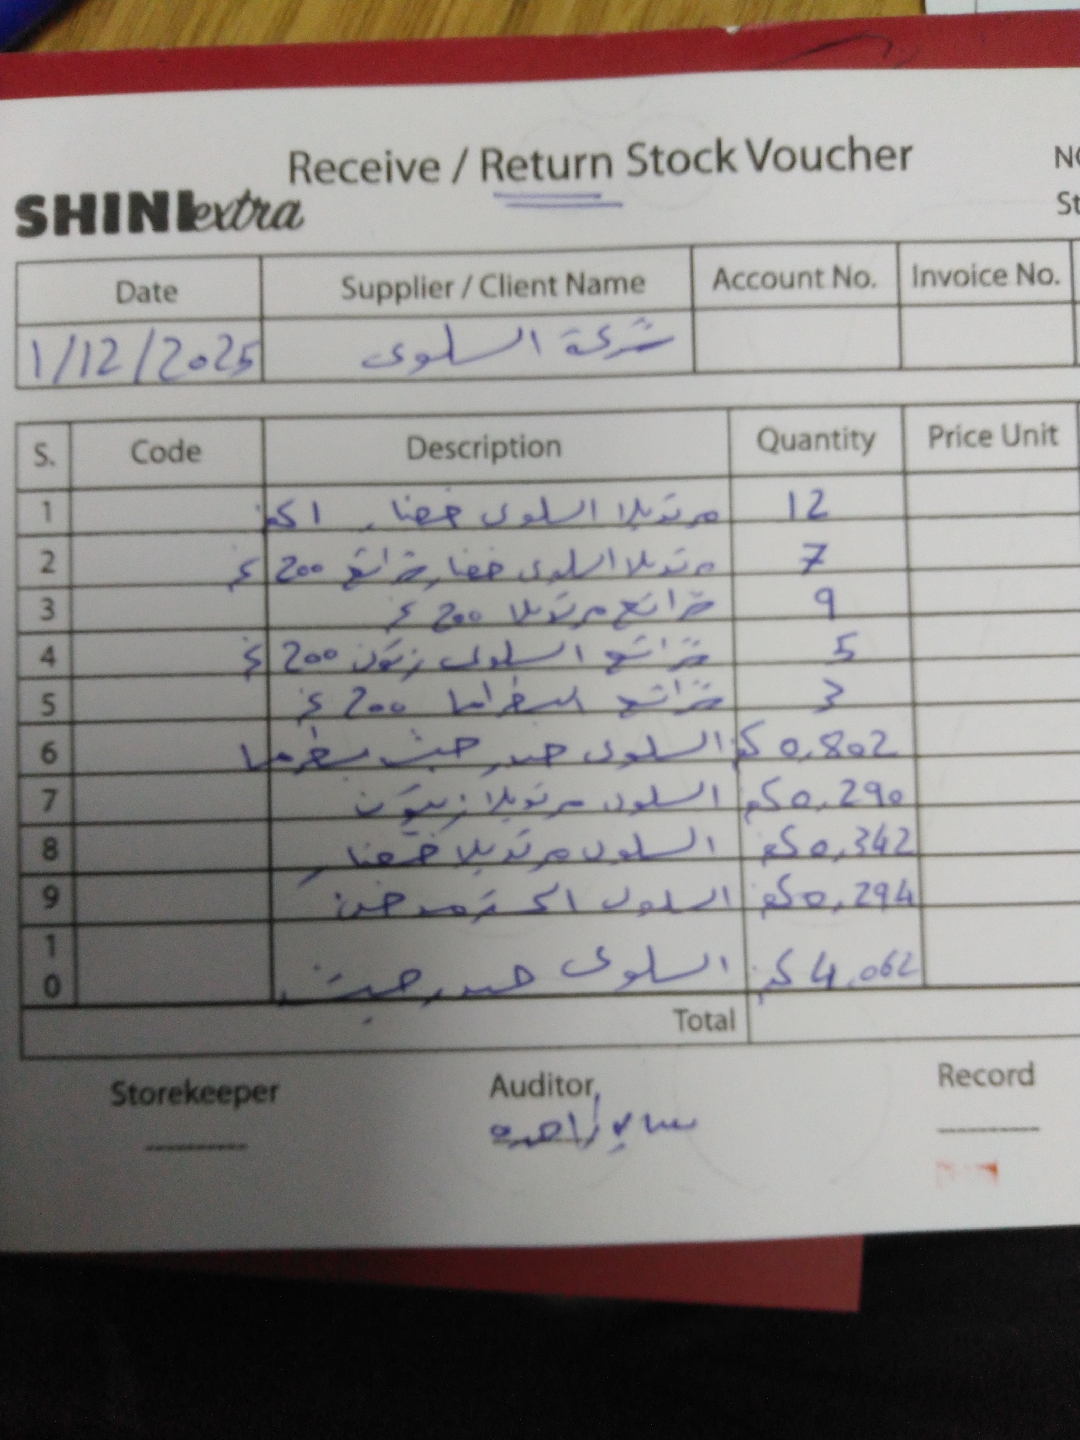 Receive / Return Stock Voucher
SHINI extra
Date Supplier / Client Name Account No. Invoice No.
1/12/2025 شركة السلوى
S. Code Description Quantity Price Unit
1 مرتديلا السلوى خضار 12
2 مرتديلا السلوى خضار شرائح 200 غ 7
3 شرائح مرتديلا 200 غ 9
4 شرائح السلوى زيتون 200 غ 5
5 شرائح 200 غ 3
6 السلوى حبش 0,802
7 السلوى مرتديلا زيتون 0,290
8 السلوى مرتديلا خضار 0,342
9 السلوى مدخن 0,294
10 السلوى حبش 4,062
Total
Storekeeper Auditor Record